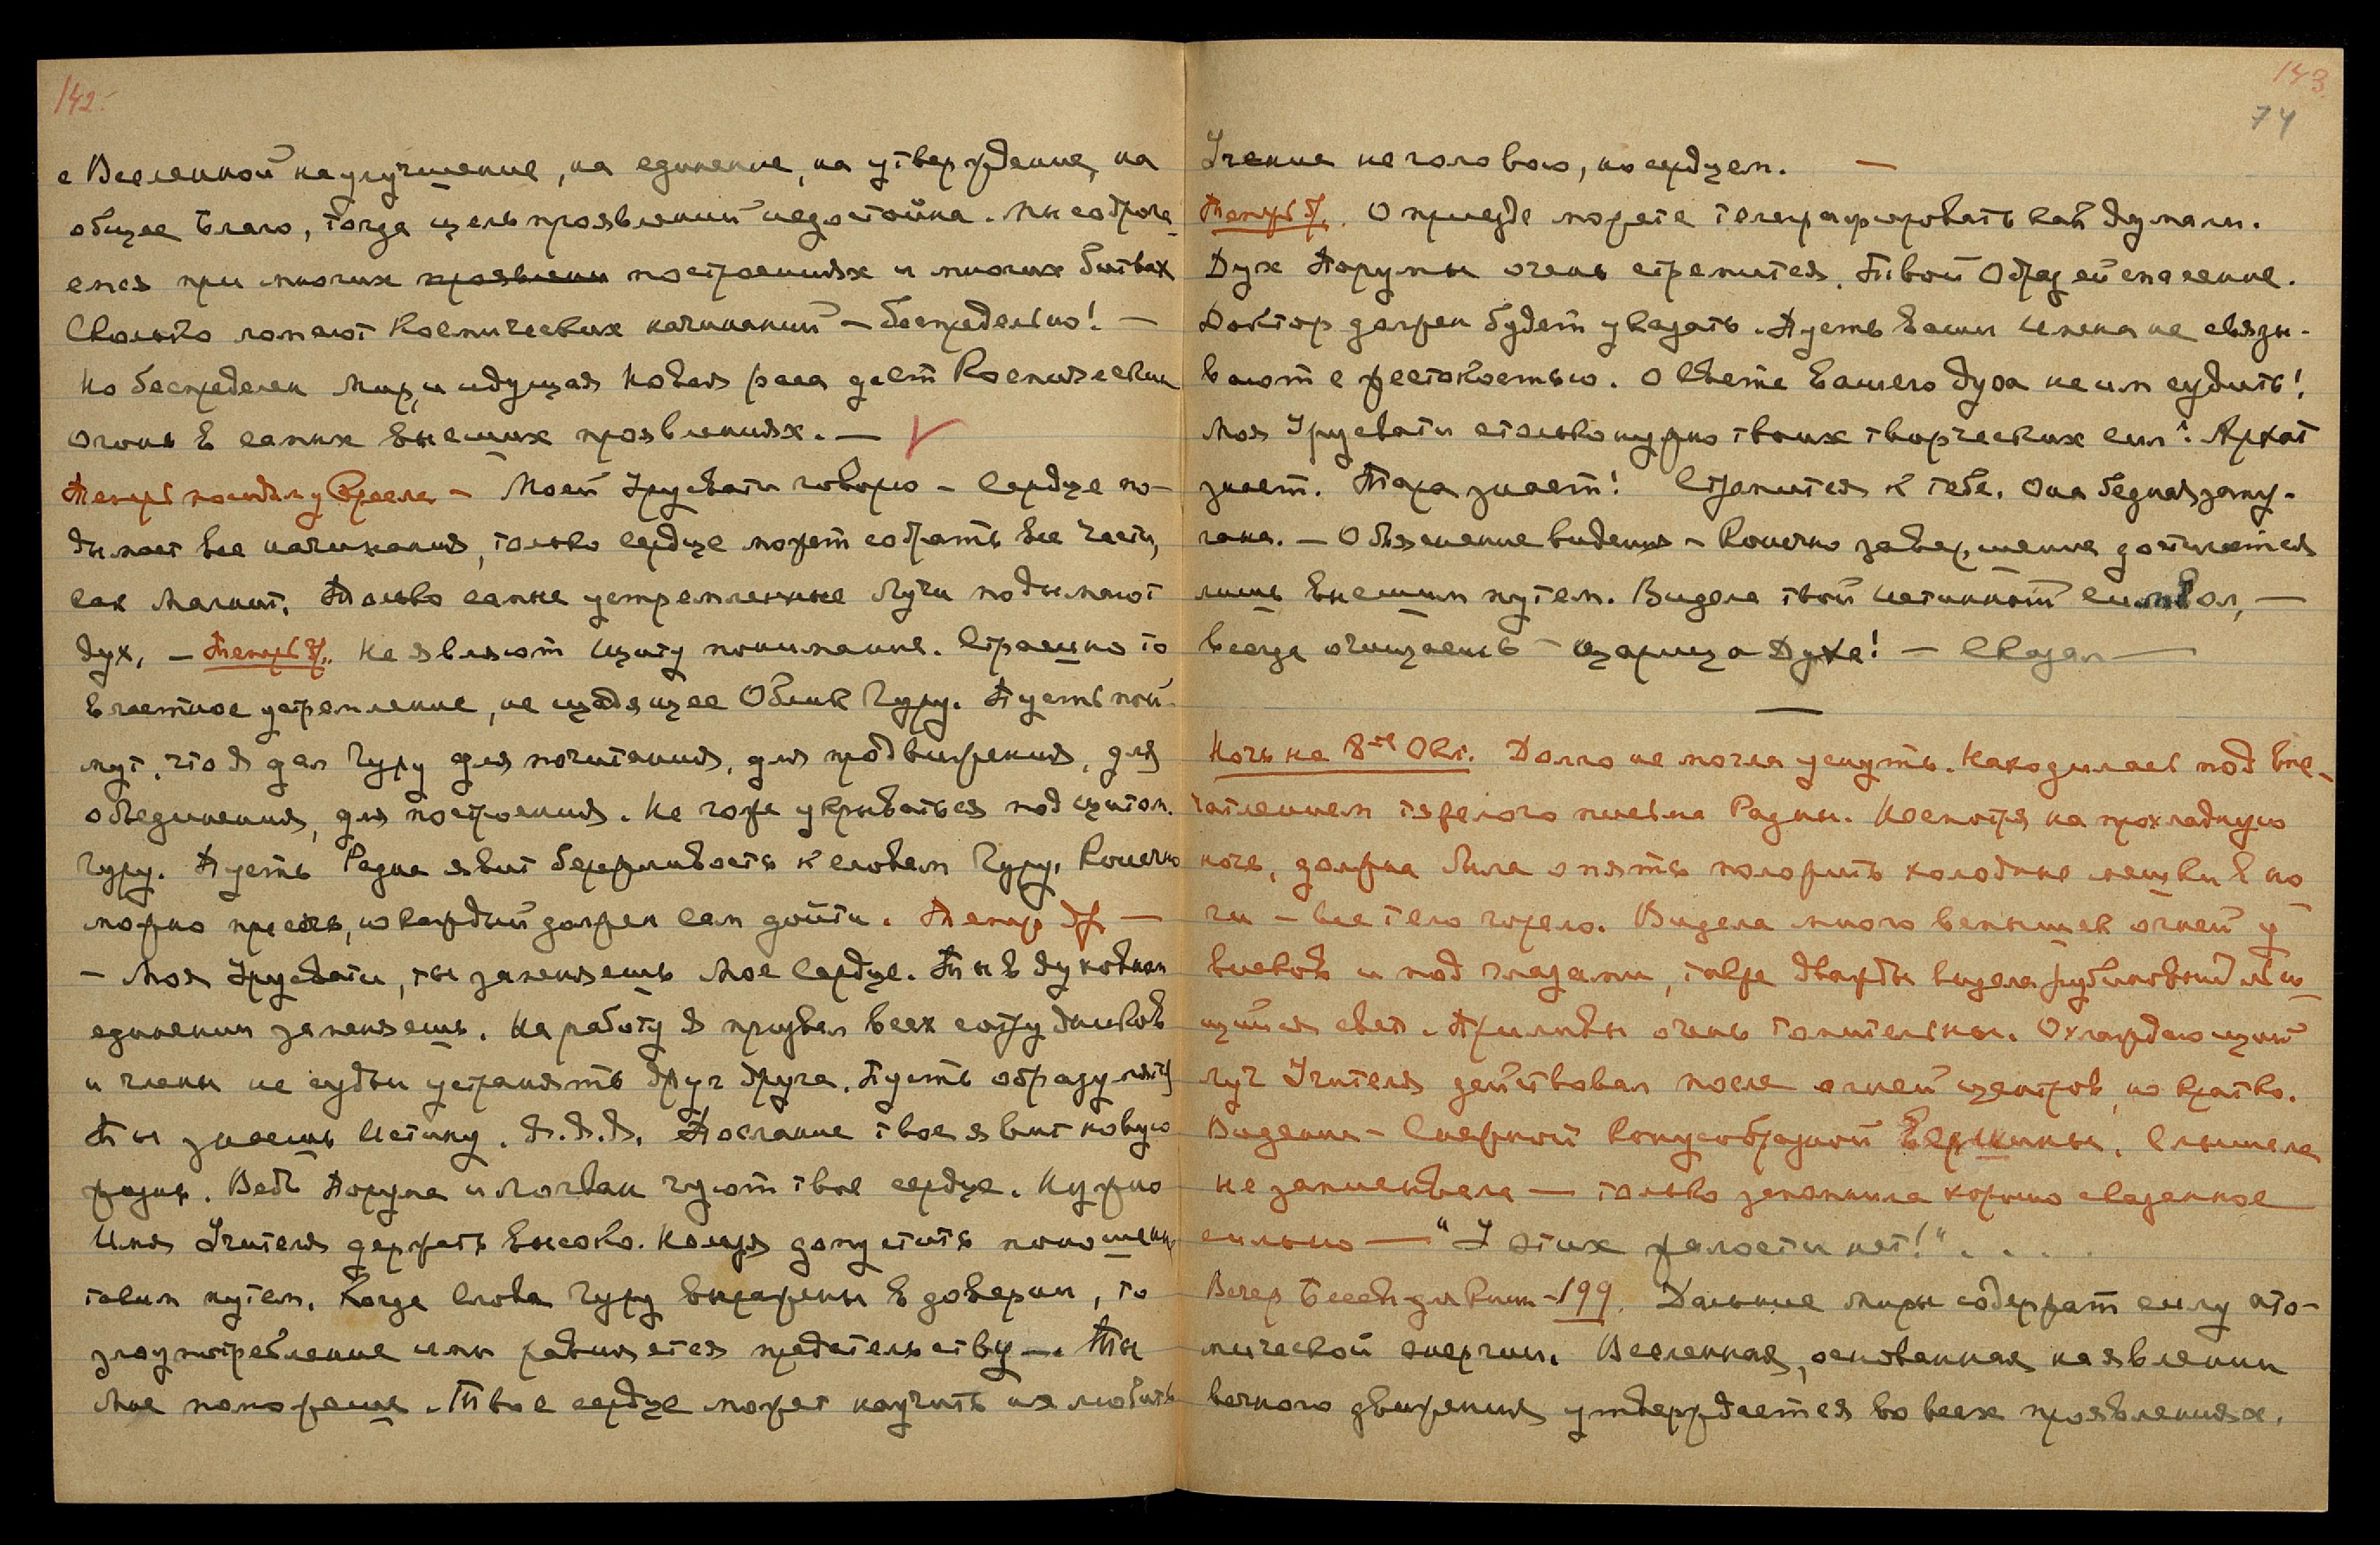 142.
с Вселенной на улучшение, на единение, на утверждение, на
общее Благо, тогда цель проявлений недостойна. Мы содрога-
емся при многих проявлени построениях и многих битвах
Сколько ломают Космических начинаний – беспредельно! –
Но беспределен Мир, и идущая новая раса даст Космический
огонь в самих высших проявлениях. – V
Теперь посидим у Кресла – Моей Урусвати говорю – Сердце по-
дымает все начинания, только сердце может собрать все части,
как Магнит. Только самые устремленные Лучи подымают
дух, – Теперь др. Не являют щиту понимание. Страшно то
властное устремление, не щадящее Облик Гуру. Пусть пой-
мут, что Я дал Гуру для почитания, для продвижения, для
объединения, для построения. Не гоже укрываться под щитом
Гуру. Пусть Радна явит бережливость к словам Гуру. Конечно
можно пресечь, но каждый должен сам дойти. Тепер др –
– Моя Урусвати, ты заменяешь Мое Сердце. Ты в духовном
единении заменяешь. На работу Я призвал всех сотрудников
и члены не судьи устранять друг друга. Пусть образумятся
Ты знаешь Истину. Д.Д.Д. Послание твое явит новую
жизнь. Ведь Порума и Логван чуют твое сердце. Нужно
Имя Учителя держать высоко. Нельзя допустить поношения
таким путем. Когда Слова Гуру выражены в доверии, то
злоупотребление ими равняется предательству –. Ты
Мне поможешь. Твое сердце может научить их любить
143
74
Учение не головою, но сердцем. –
Теперь др. О приезде можете телеграфировать как думали.
Дух Порумы очень стремится. Твой Образ ей спасение.
Доктор должен будет уехать. Пусть Ваши Имена не связы-
вают с жестокостью. О Свете Вашего духа не им судить!
Моя Урусвати столько нужно твоих творческих сил! Архат
знает. Тара знает! Стремится к тебе. Она бедная заму-
чена. – Объяснение видения – Конечно завершение достигается
лишь высшим путем. Видела твой истинный символ, –
всегда очищаешь – царица Духа! – Сказал –
Ночь на 8-ое Окт. Долго не могла уснуть. Находилась под впе-
чатлением тяжелого письма Радны. Несмотря на прохладную
ночь, должна была опять положить холодные мешки в но
ги – все тело горело. Видела много вспышек огней у
висков и под глазами, также дважды видела рубиновый лью-
щийся свет. Приливы очень томительны. Охлаждающий
луч Учителя действовал после огней центров, но кратко.
Видение – Снежной конусообразной Вершины. Слышала
не записывала – только запомнила хорошо сказанное
сильно – "У этих жалости нет!" . . . .
Вечер Беседы для Книги – 199. Дальние Миры содержат силу ато-
мической энергии. Вселенная, основанная на явлении
вечного движения утверждается во всех проявлениях.